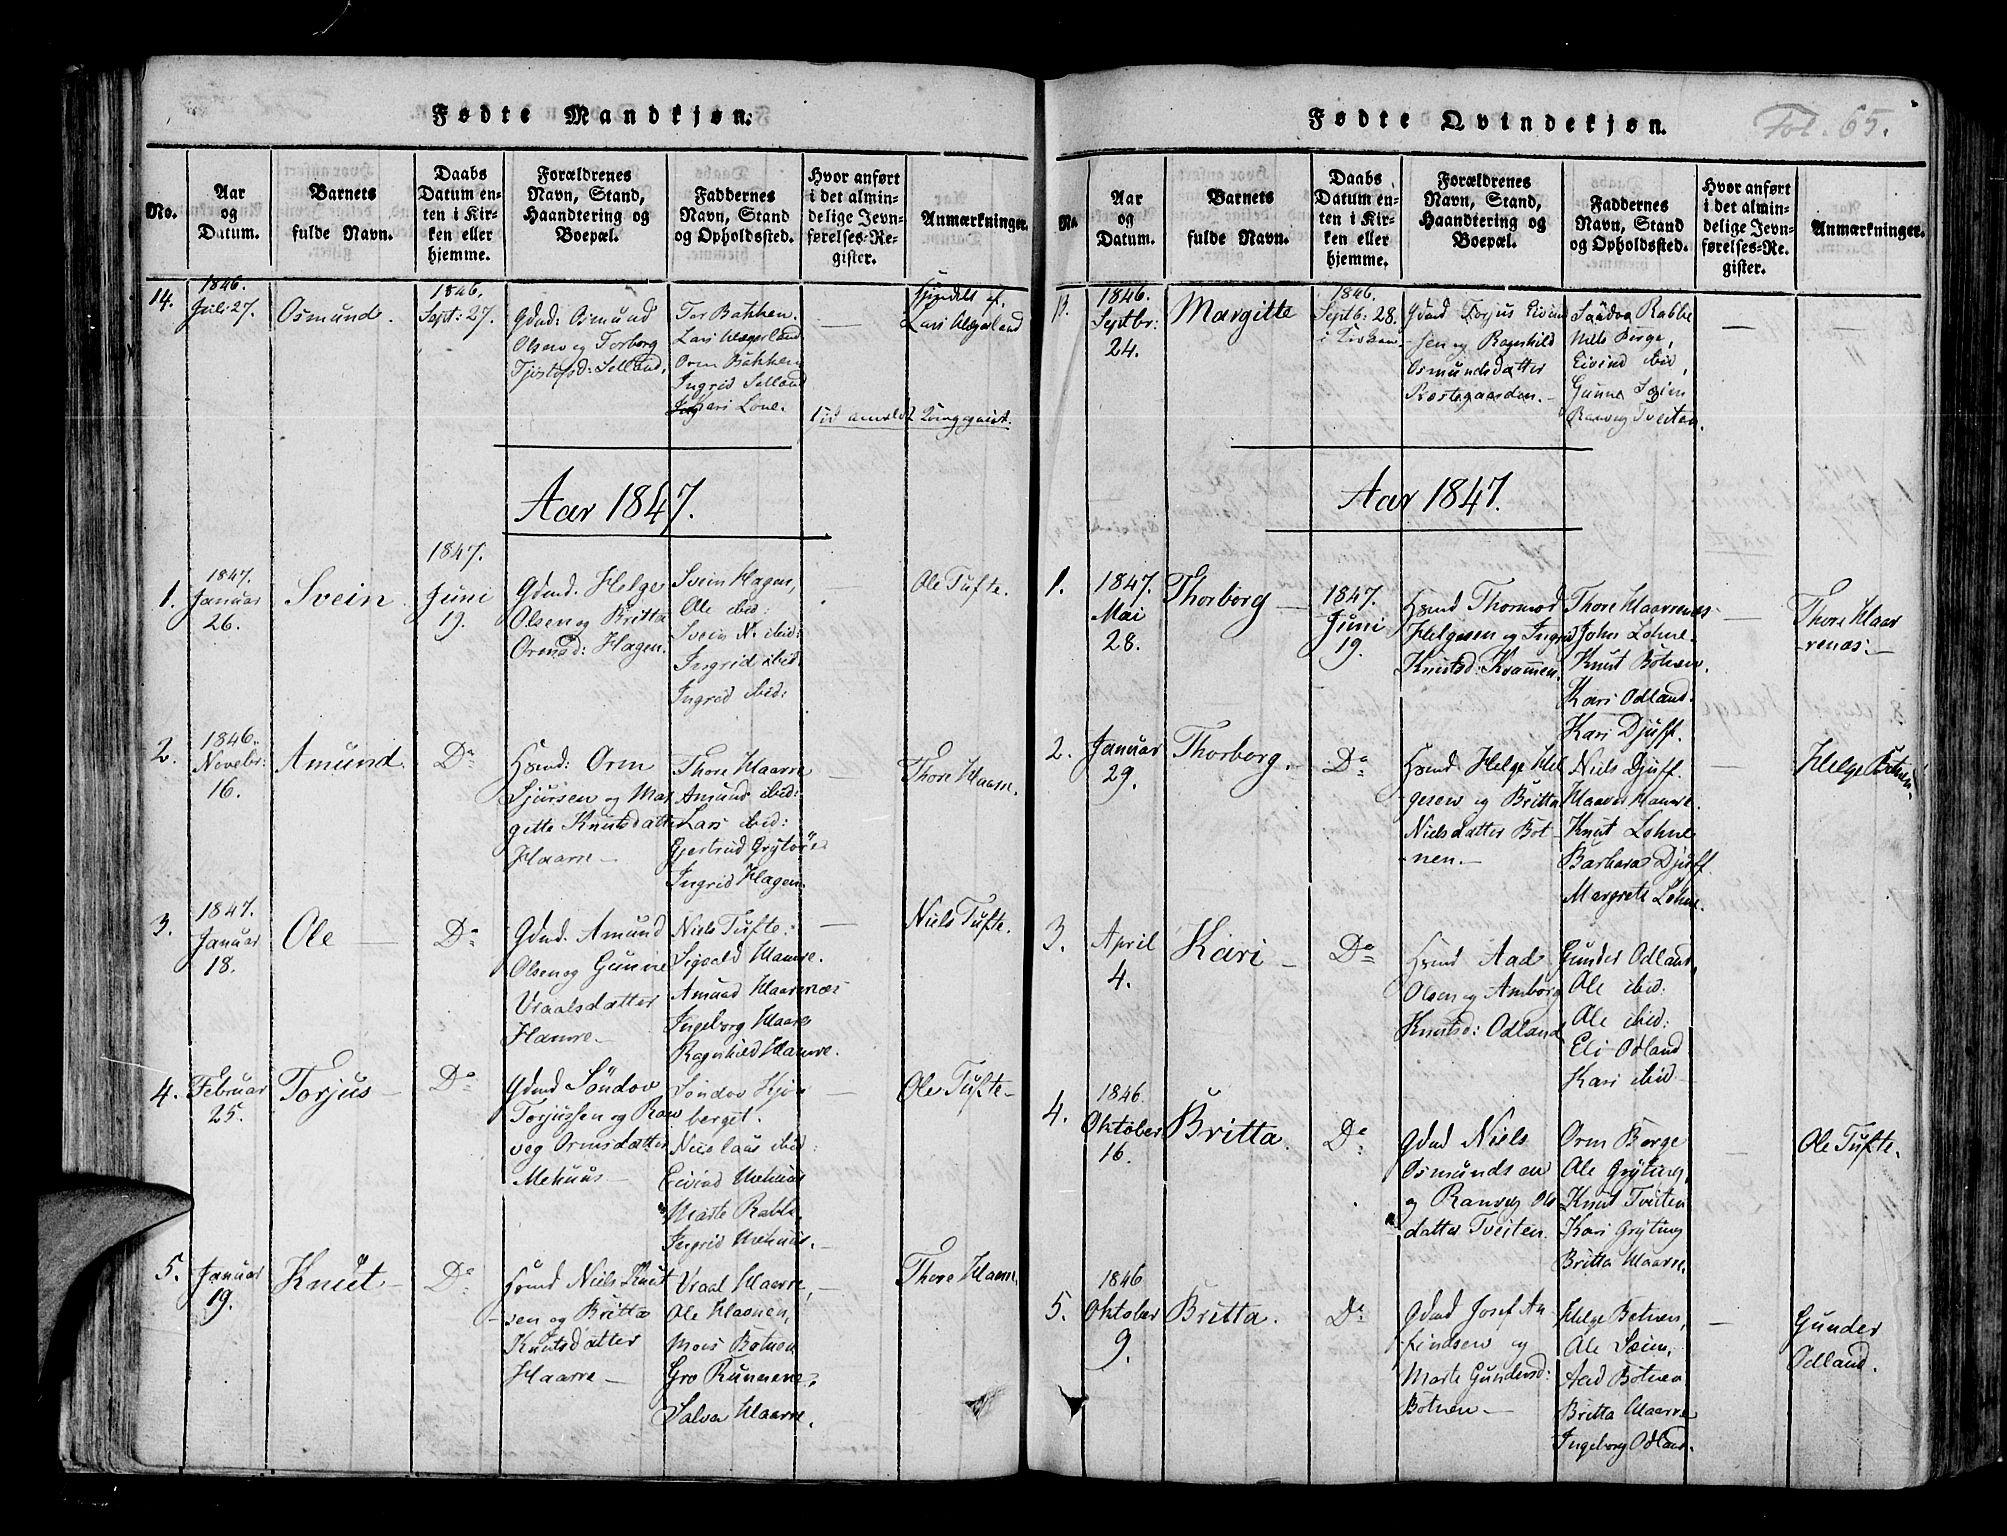 Fødte Mandkjøn.
No.
Aar
og
Datum.
Barnets
fulde Navn.
Daabs
Datum en-
ten i Kir-
ken eller
hjemme.
Forældrenes
Navn, Stand,
Haandtering og
Boepæl.
Faddernes
Navn, Stand
og Opholdssted.
Hvor anført
i det almin-
delige Jevn-
førelses-Re-
gister.
Anmærkninger.
14.
1846.
Juli 27.
Osmund.
1846.
Sept: 27.
Gdmd: Osmund
Olsen og Torborg
Tjostofsd: Selland.
Tor Bakken.
Lars Helgeland
Orm Bakken
Ingrid Selland
Kari Lone.
af
Lars Helgeland
Aar 1847.
1.
1847.
Januar
26.
Svein.
1847.
Juni
19.
Gdmd. Helge
Olsen og Britta
Ormsd: Hagen.
Svein Hagen,
Ole ibid:
Svein N. ibid:
Ingrid ibid:
Ingrid ibid:
Ole Tufte.
2.
1846.
Novebr:
16.
Amund.
Do
Hsmd: Orm
Sjursen og Mar
gitte Knutsdatter
Haarre
Thore Haarre
Amund ibid:
Lars ibid:
Gjertrud Grytøre
Ingrid Hagen.
Thore Haarre.
3.
1847.
Januar
18.
Ole
Do
Gdmd. Amund
Olsen og Gunne
Vraalsdatter
Hamre
Niels Tufte.
Sigvald Hamre.
Amund Haarenæs
Ingeborg Haarre
Ragnhild Hamre.
Niels Tufte.
4.
Februar
25.
Torjus
Do
Gdmd Söndov
Torjussen og Ran
veg Ormsdatter
Mehuus
Söndov Hjor
berget.
Nicolaus ibid:
Eivind Mehuus
Marte Rabbe
Ingrid Mehuus.
Ole Tufte
5.
Januar
19.
Knut
Do
Hsmd Niels Knut
sen og Britta
Knutsdatter
Haarre
Vraal Haarre,
Ole Haanen,
Mois Botnen
Gro Runnene
Salva Haarre.
Thore Haarre
Fødte Qvindekjøn.
Fol. 65.
No.
Aar
og
Datum.
Barnets
fulde Navn.
Daabs
Datum en-
ten i Kir-
ken eller
hjemme.
Forældrenes
Navn, Stand,
Haandtering og
Boepæl.
Faddernes
Navn, Stand
og Opholdssted.
Hvor anført
i det almin-
delige Jevn-
førelses-Re-
gister.
Anmærkninger.
13.
1846.
Septbr:
24.
Margitte
1846.
Septb: 28.
i Kirken
Gdmd Torjus Eivind
sen og Ragnhild
Osmundsdatter
Præstegaarden.
Söndov Rabbe
Niels Berge,
Eivind ibid,
Gunne Soein
Ranveg Tveiten
Aar 1847.
1.
1847.
Mai
28.
Thorborg
1847.
Juni
19.
Hsmd Thormod
Helgesen og Ingrid
Knutsd: Krammen.
Thore Haarrenæs
John Lohne.
Knut Botnen.
Kari Odland.
Kari Djuff.
Thore Haar
renæs.
2.
Januar
29.
Thorborg.
Do
Hsmd Helge Hel
gesen og Britta
Nielsdatter Bot
nen.
Niels Djuff.
Haavor Hamre.
Knut Lohne
Barbara Djuff.
Margrete Lohne.
Helge Botnen.
3.
April
4.
Kari
Do
Hsmd Aad
Olsen og Amborg
Knutsd: Odland
Gunder Odland,
Ole ibid:
Ole ibid:
Eli Odland
Kari ibid
4.
1846
Oktober
16.
Britta.
Do
Gdmd Niels
Osmundsen
og Ranveg Ols
datter Tveiten.
Orm Berge
Ole Gryting,
Knut Tveiten
Kari Gryting
Britta Haarre.
Ole Tufte.
5.
1846
Oktober
9.
Britta.
Do
Gdmd Josef An
findsen og
Marte Gundersd:
Botnen
Helge Botnen,
Ole Soein,
Aad Botnen
Britta Haarre
Ingeborg Odland.
Gunder
Odland.